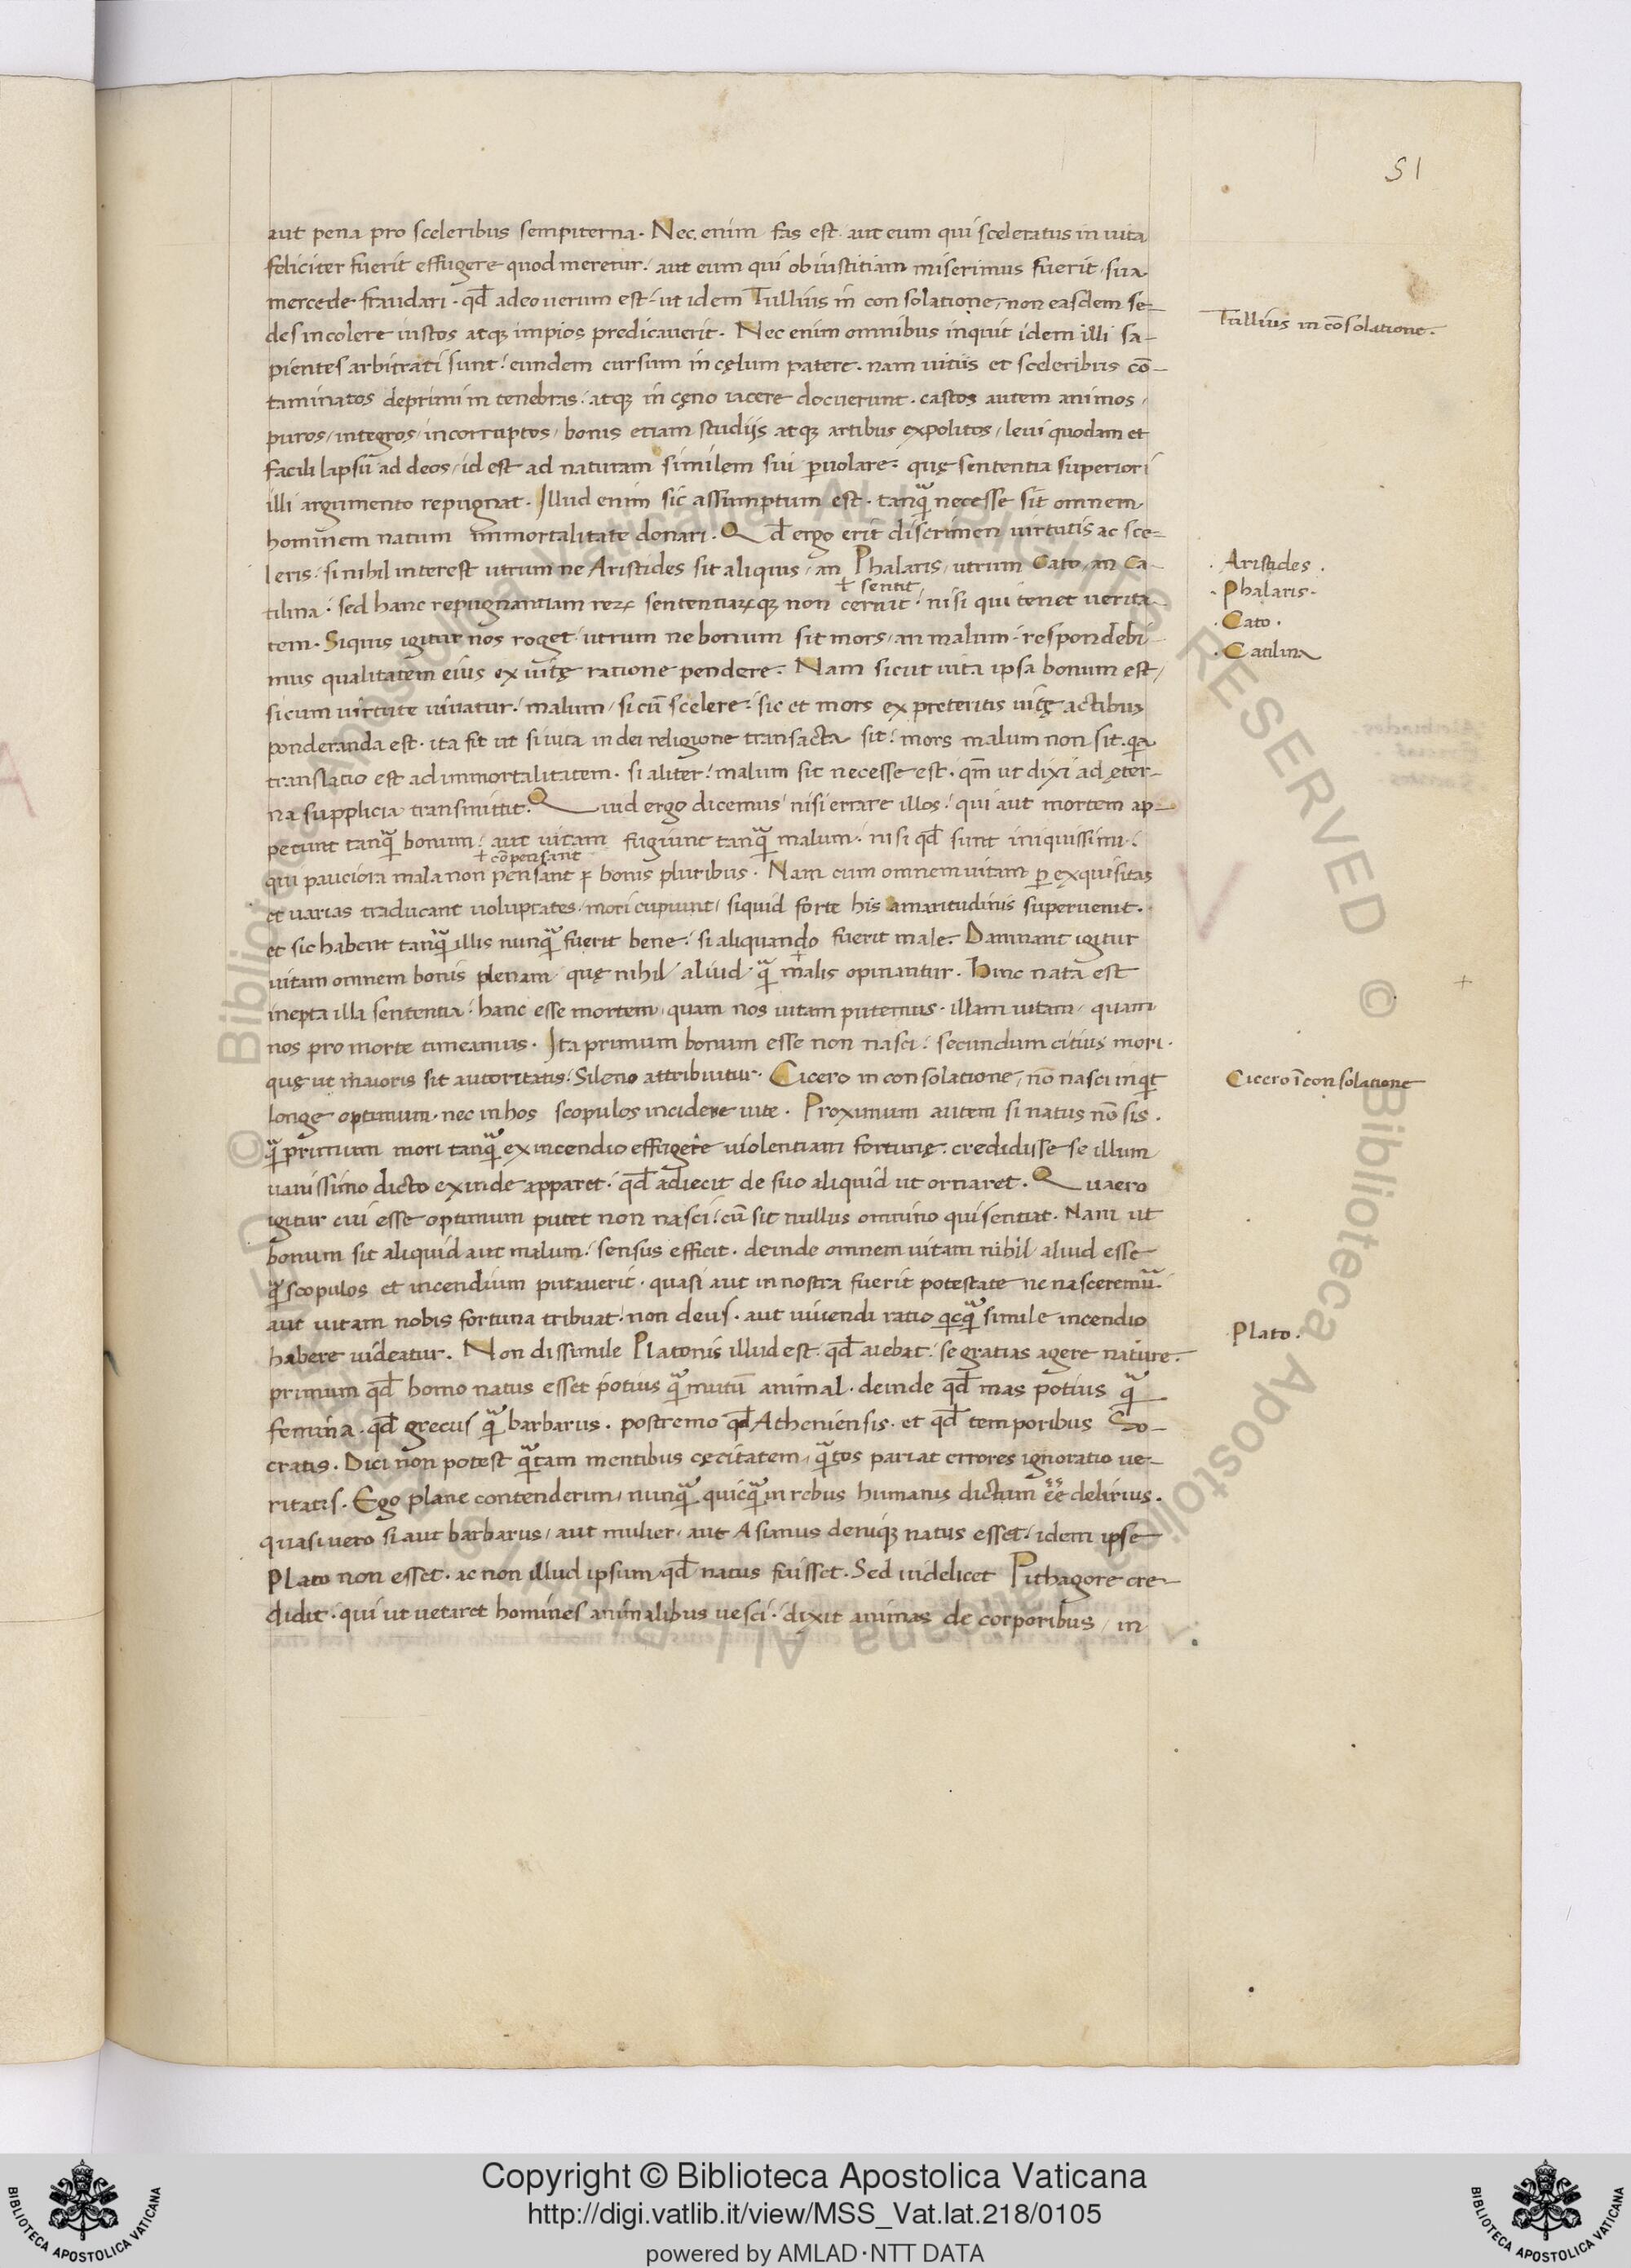 51
aut pena pro sceleribus sempiterna. Nec enim fas est aut eum qui sceleratus in uita
feliciter fuerit effugere quod meretur: aut eum qui ob iustitiam miserimus fuerit, sua
mercede fraudari. qđ adeo uerum est: ut idem Tullius in consolatione, non easdem se-
des incolere iustos atq; impios predicauerit. Nec enim omnibus inquit idem illi sa-
Tullius in cōsolatione.
pientes arbitrati sunt: eundem cursum in cęlum patere. nam uitiis et sceleribus cō-
taminatos deprimi in tenebras: atq; in cęno iacere docuerunt. castos autem animos,
puros, integros, incorruptos, bonis etiam studijs atq; artibus expolitos, leui quodam et
facili lapsu ad deos, id est ad naturam similem sui ꝑuolare: quę sententia superiori
illi argumento repugnat. Illud enim sic assumptum est. tanq̃ necesse sit omnem
hominem natum immortalitate donari. Qđ ergo erit discrimen uirtutis ac sce-
leris: si nihil interest utrum ne Aristides sit aliquis, an Phalaris, utrum Cato, an Ca-
· Aristides .
+ sentit
tilina: sed hanc repugnantiam reꝝ sententiaꝝq; non cernit: nisi qui tenet uerita-
· Phalaris·
· Cato .
tem. Siquis igitur nos roget: utrum ne bonum sit mors, an malum: respondebi-
· Catilina
mus qualitatem eius ex uitę ratione pendere. Nam sicut uita ipsa bonum est,
si cum uirtute uiuatur: malum, si cū scelere: sic et mors ex preteritis uitę actibus
ponderanda est. ita fit ut si uita in dei religione transacta sit: mors malum non sit. qa
translatio est ad immortalitatem. si aliter: malum sit necesse est. qm̄ ut dixi ad ęter-
na supplicia transmittit. Quid ergo dicemus: nisi errare illos: qui aut mortem ap-
petunt tanq̃ bonum: aut uitam fugiunt tanq̃ malum. nisi qđ sunt iniquissimi:
+ cōpensant
qui pauciora mala non pensant ꝑ bonis pluribus. Nam cum omnem uitam ꝑ exquisitas
et uarias traducant uoluptates, mori cupiunt, siquid forte his amaritudinis superuenit.
et sic habent tanq̃ illis nunq̃ fuerit bene: si aliquando fuerit male. Damnant igitur
uitam omnem bonis plenam quę nihil aliud q̃ malis opinantur. Hinc nata est
inepta illa sententia: hanc esse mortem, quam nos uitam putemus. illam uitam, quam
nos pro morte timeamus. Ita primum bonum esse non nasci: secundum citius mori.
quę ut maioris sit autoritatis: Sileno attribuitur. Cicero in consolatione, nō nasci inqt
Cicero ī consolatione
longe optimum. nec in hos scopulos incidere uite. Proximum autem si natus nō sis.
q̃ primum mori tanq̃ ex incendio effugere uiolentiam fortunę. credidisse se illum
uanissimo dicto exinde apparet: qđ adiecit de suo aliquid ut ornaret. Quaero
igitur cui esse optimum putet non nasci: cū sit nullus omnino qui sentiat. Nam ut
bonum sit aliquid aut malum: sensus efficit. deinde omnem uitam nihil aliud esse
q̃ scopulos et incendium putauerit. quasi aut in nostra fuerit potestate ne nasceremur̃
aut uitam nobis fortuna tribuat: non deus. aut uiuendi ratio qcq̃ simile incendio
habere uideatur. Non dissimile Platonis illud est. qđ aiebat: se gratias agere nature.
Plato .
primum qđ homo natus esset potius q̃ mutū animal. deinde qđ mas potius q̃
femina. qđ grecus q̃ barbarus. postremo qđ Atheniensis. et qđ temporibus So-
cratis. Dici non potest q̃tam mentibus cęcitatem, q̃tos pariat errores ignoratio ue-
ritatis. Ego plane contenderim, nunq̃ quicq̃ in rebus humanis dictum ēē delirius.
quasi uero si aut barbarus, aut mulier, aut Asianus deniq; natus esset: idem ipse
Plato non esset. ac non illud ipsum, qđ natus fuisset. Sed uidelicet Pithagore cre-
didit. qui ut uetaret homines animalibus uesci: dixit animas de corporibus, in
© Biblioteca Apostolica Vaticana ALL RIGHTS RESERVED © Biblioteca Apostolica Vaticana ALL RIGHTS RESERVED
Copyright © Biblioteca Apostolica Vaticana
http://digi.vatlib.it/view/MSS_Vat.lat.218/0105
powered by AMLAD·NTT DATA
BIBLIOTECA APOSTOLICA VATICANA
BIBLIOTECA APOSTOLICA VATICANA